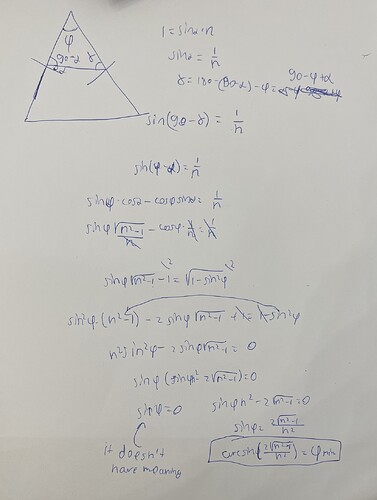 φ
90-α γ
α
1 = sinα·n
sinα = 1/n
γ = 180-(90-α)-φ = 90-φ+α
sin(90-γ) = 1/n
sin(φ-α) = 1/n
sinφ·cosα - cosφsinα = 1/n
sinφ √(n²-1)/n - cosφ·1/n = 1/n
sinφ√(n²-1) - 1 = √(1-sin²φ)
sin²φ·(n²-1) - 2sinφ√(n²-1) + 1 = 1-sin²φ
n²sin²φ - 2sinφ√(n²-1) = 0
sinφ(sinφn² - 2√(n²-1)) = 0
sinφ = 0 sinφn² - 2√(n²-1) = 0
sinφ = 2√(n²-1)/n²
it doesn't
have meaning
arcsin(2√(n²-1)/n²) = φmin